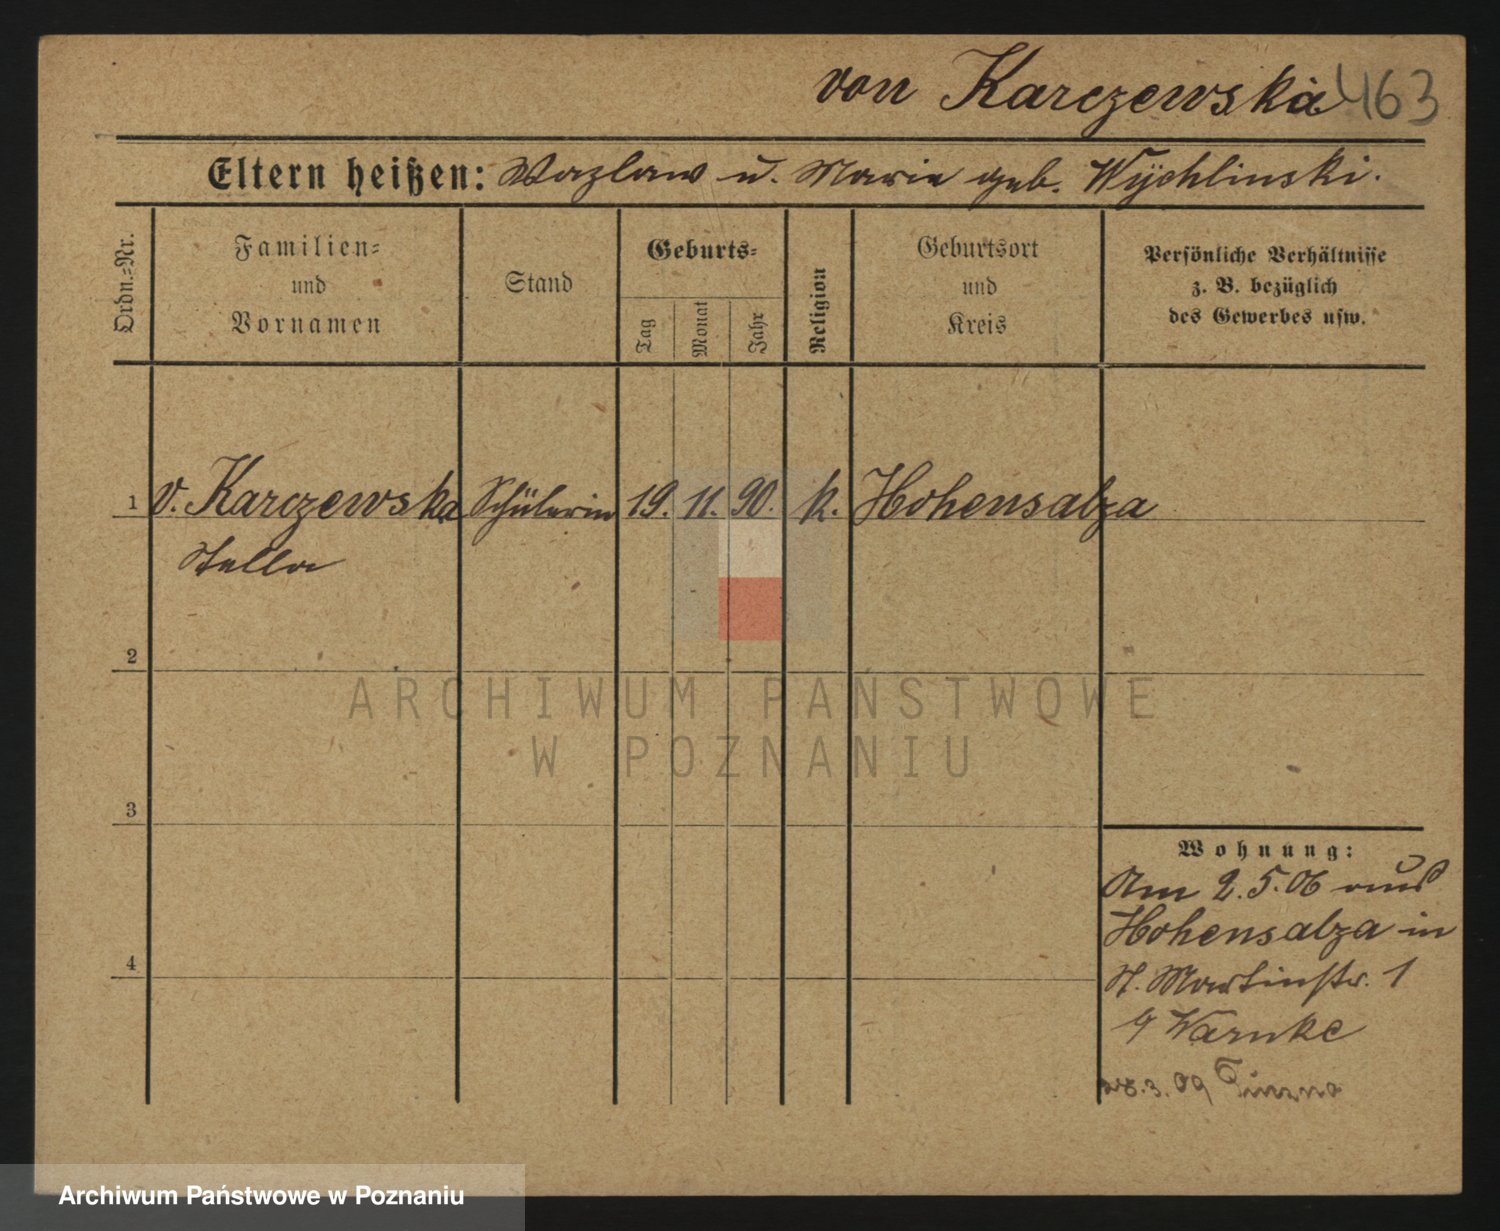 von Karczewska 463
Eltern heißen: Wazlaw u. Marie geb. Wychlinski.
Ordn.=Nr.
Familien=
und
Vornamen
Stand
Geburts=
Tag
Monat
Jahr
Religion
Geburtsort
und
Kreis
Persönliche Verhältnisse
z. B. bezüglich
des Gewerbes usw.
1 v. Karczewska Schülerin 19. 11. 90. k. Hohensalza
Stella
2
ARCHIWUM PAŃSTWOWE
W POZNANIU
3
Wohnung:
Am 2.5.06 aus
Hohensalza in
St. Martinstr. 1
Warnke
28.3.09
4
Archiwum Państwowe w Poznaniu